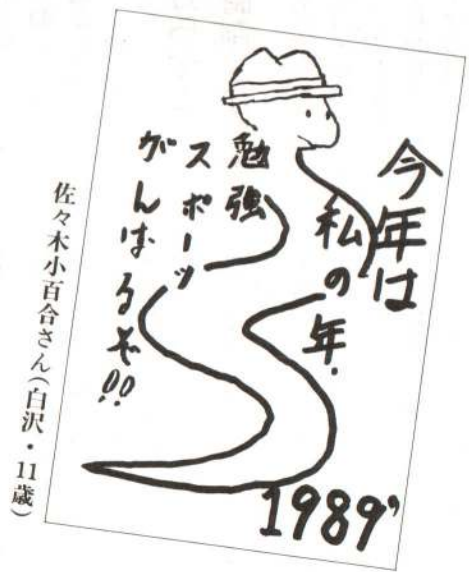 今年は
私の年.
勉強
スポーツ
がんばるぞ!!
1989'
佐々木小百合さん(白沢・11歳)